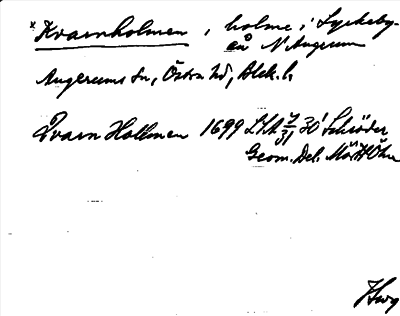 *Kvarnholmen, holme i Lyckeby-
ån N Augerum
Augerums sn, Östra hd, Blek. l.
Qvarn Hollmen 1699 LSA 30 Schröder
Geom. Del.